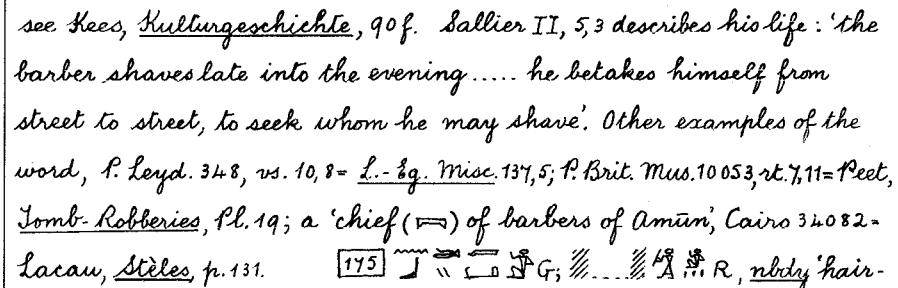 see Kees, Kulturgeschichte, 90 f. Sallier II, 5,3 describes his life: 'the
barber shaves late into the evening..... he betakes himself from
street to street, to seek whom he may shave'. Other examples of the
word, P. Leyd. 348, vs. 10, 8 = L.-Eg. Misc. 137, 5; P. Brit. Mus. 10053, rt. 7, 11 = Peet,
Tomb-Robberies, Pl. 19; a 'chief ( ) of barbers of Amūn', Cairo 34082 =
Lacau, Stèles, p. 131. 175 G; R, nbdy 'hair-